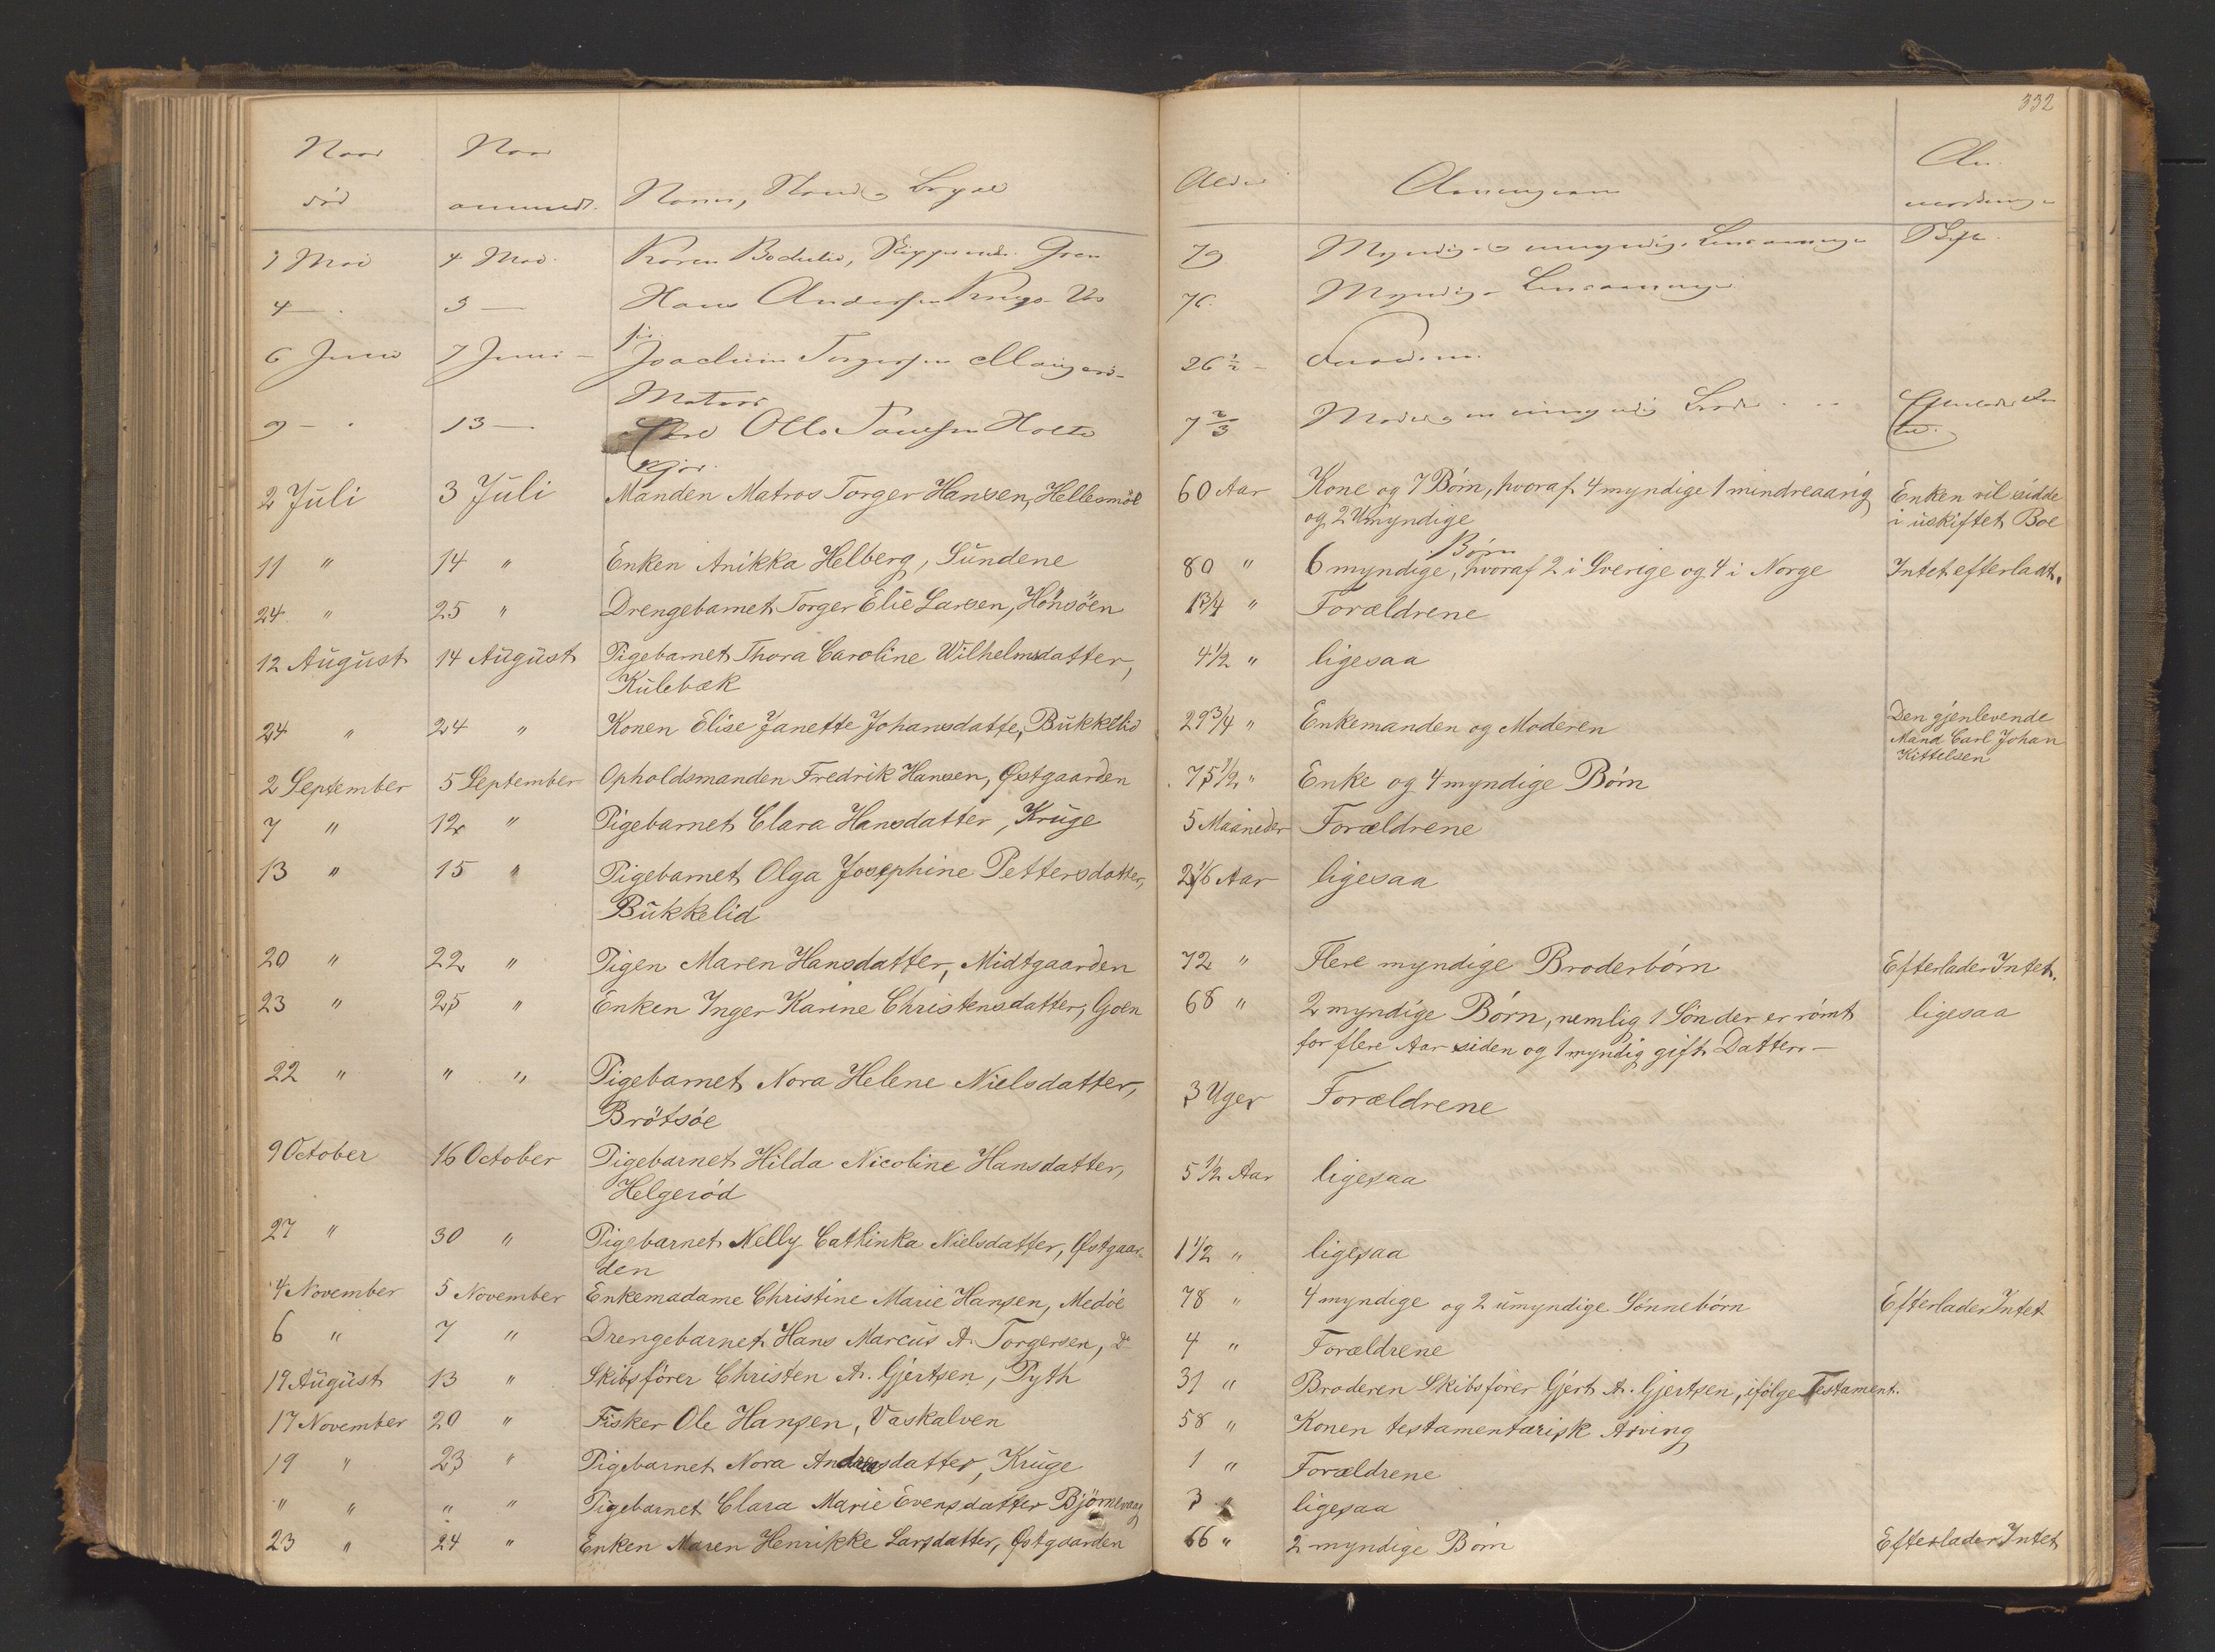 332
Naar død
Naar anmeldt.
Navn, Stand og Bopæl
Alder
Arvingerne
An mærkning
3 Mai 4 Mai. Karen 79 Myndige og umyndige Livsarvinger
4 — 5 — Hans Andersen Kruge 76. Myndige Livsarvinger
6 Juni 7 Juni — Joachim Torgersen 26 1/2 —
Matros
9 — 13 — Otto Holte 7 2/3 Moder og en umyndig Broder
2 Juli 3 Juli Manden Matros Torger Hansen, Hellesmöe 60 Aar Kone og 7 Börn, hvoraf 4 myndige 1 mindreaarig Enken vil sidde
og 2 Umyndige i uskiftet Boe
11 " 14 " Enken Anikka Helberg, Sundene 80 " 6 myndige Börn, hvoraf 2 i Sverige og 4 i Norge Intet efterladt.
24 " 25 " Drengebarnet Torger Elie Larsen, Hönsöen 1 3/4 " Forældrene
12 August 14 August Pigebarnet Thora Caroline Wilhelmsdatter, 4 1/2 " ligesaa
Kulebæk
24 " 24 " Konen Elise Janette Johansdatte, Bukkelid 29 3/4 " Enkemanden og Moderen Den gjenlevende
Mand Carl Johan
Kittelsen
2 September 5 September Opholdsmanden Fredrik Hansen, Østgaarden 75 1/2 " Enke og 4 myndige Börn
7 " 12 " Pigebarnet Clara Hansdatter, Kruge 5 Maaneder Forældrene
13 " 15 " Pigebarnet Olga Josephine Pettersdatter, 2 1/6 Aar ligesaa
Bukkelid
20 " 22 " Pigen Maren Hansdatter, Midtgaarden 72 " Flere myndige Broderbörn Efterlader Intet.
23 " 25 " Enken Inger Karine Christensdatter, Goen 68 " 2 myndige Börn, nemlig 1 Sön der er römt ligesaa
for flere Aar siden og 1 myndig gift Datter. —
22 " " " Pigebarnet Nora Helene Nielsdatter, 3 Uger Forældrene
Brötsöe
9 October 16 October Pigebarnet Hilda Nicoline Hansdatter, 5 1/2 Aar ligesaa
Helgeröd
27 " 30 " Pigebarnet Nelly Cathinka Nielsdatter, Østgaar- 1 1/2 " ligesaa
den
4 November 5 November Enkemadame Christine Marie Hansen, Medöe 78 " 4 myndige og 2 umyndige Sönnebörn Efterlader Intet
6 " 7 " Drengebarnet Hans Marcus A. Torgersen, do 4 " Forældrene
19 August 13 " Skibsförer Christen A. Gjertsen, Pyth 31 " Broderen Skibsförer Gjert A. Gjertsen, ifölge Testament.
17 November 20 " Fisker Ole Hansen, Vaskalven 58 " Konen testamentarisk Arving
19 " 23 " Pigebarnet Nora Andreasdatter, Kruge 1 " Forældrene
" " " " Pigebarnet Clara Marie Evensdatter Björnevaag 3 " ligesaa
23 " 24 " Enken Maren Henrikke Larsdatter, Østgaarden 66 " 2 myndige Börn Efterlader Intet